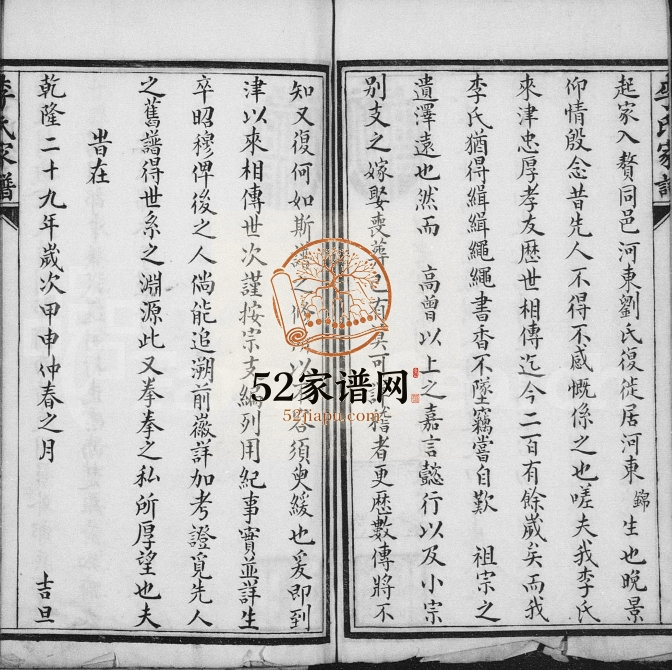 起家入贅同邑河東劉氏復徙居河東錦生也晚景
仰情殷念昔先人不得不感慨係之也嗟夫我李氏
來津忠厚孝友歷世相傳迄今二百有餘歲矣而我
李氏猶得緝緝繩繩書香不墜竊嘗自歎 祖宗之
遺澤遠也然而 高曾以上之嘉言懿行以及小宗
別支之嫁娶喪葬已有莫可
者更歷數傳將不
知又復何如斯譜之修
須臾緩也爰即到
津以來相傳世次謹按宗支編列用紀事實並詳生
卒昭穆俾後之人倘能追溯前徽詳加考證覓先人
之舊譜得世系之淵源此又拳拳之私所厚望也夫
旹在
乾隆二十九年歲次甲申仲春之月 吉旦
李氏家譜
52家谱网
52jiapu.com